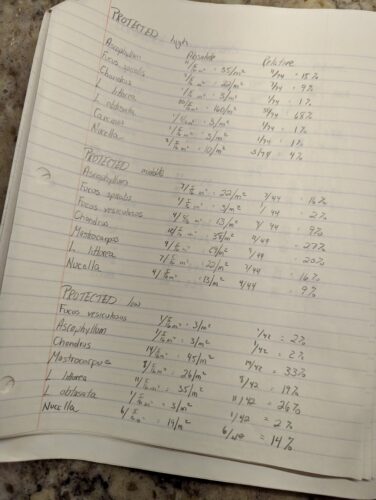 PROTECTED high
Absolute Relative
Ascophyllum 11/5/16 m² = 35/m² 11/74 = 15%
Fucus spiralis 7/5/16 m² = 22/m² 7/74 = 9%
Chondrus 1/5/16 m² = 3/m² 1/74 = 1%
L littorea 50/5/16 m² = 160/m² 50/74 = 68%
L obtusata 1/5/16 m² = 3/m² 1/74 = 1%
Carcinus 1/5/16 m² = 3/m² 1/74 = 1%
Nucella 3/5/16 m² = 10/m² 3/74 = 4%
PROTECTED middle
Ascophyllum 7/5/16 m² = 22/m² 7/44 = 16%
Fucus spiralis 1/5/16 m² = 3/m² 1/44 = 2%
Fucus vesiculosus 4/5/16 m² = 13/m² 4/44 = 9%
Chondrus 35/m² = 27%
Mastocarpus = 20%
L littorea 7/5/16 m² = 22/m² 7/44 = 16%
Nucella 4/5/16 m² = 13/m² 4/44 = 9%
PROTECTED low
Fucus vesiculosus 1/5/16 m² = 3/m² 1/42 = 2%
Ascophyllum 1/5/16 m² = 3/m² 1/42 = 2%
Chondrus 14/5/16 m² = 45/m² 14/42 = 33%
Mastrocarpus 8/5/16 m² = 26/m² 8/42 = 19%
L littorea 11/5/16 m² = 35/m² 11/42 = 26%
L obtusata 1/5/16 m² = 3/m² 1/42 = 2%
Nucella 6/5/16 m² = 19/m² 6/42 = 14%